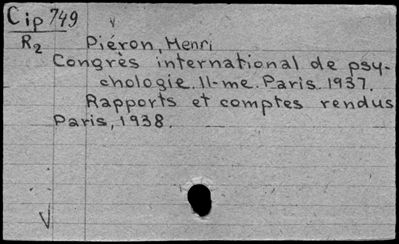 Cip 749
R2
Piéron, Henri
Congrès international de psy-
chologie. II-me. Paris. 1937.
Rapports et comptes rendus
Paris, 1938.
V